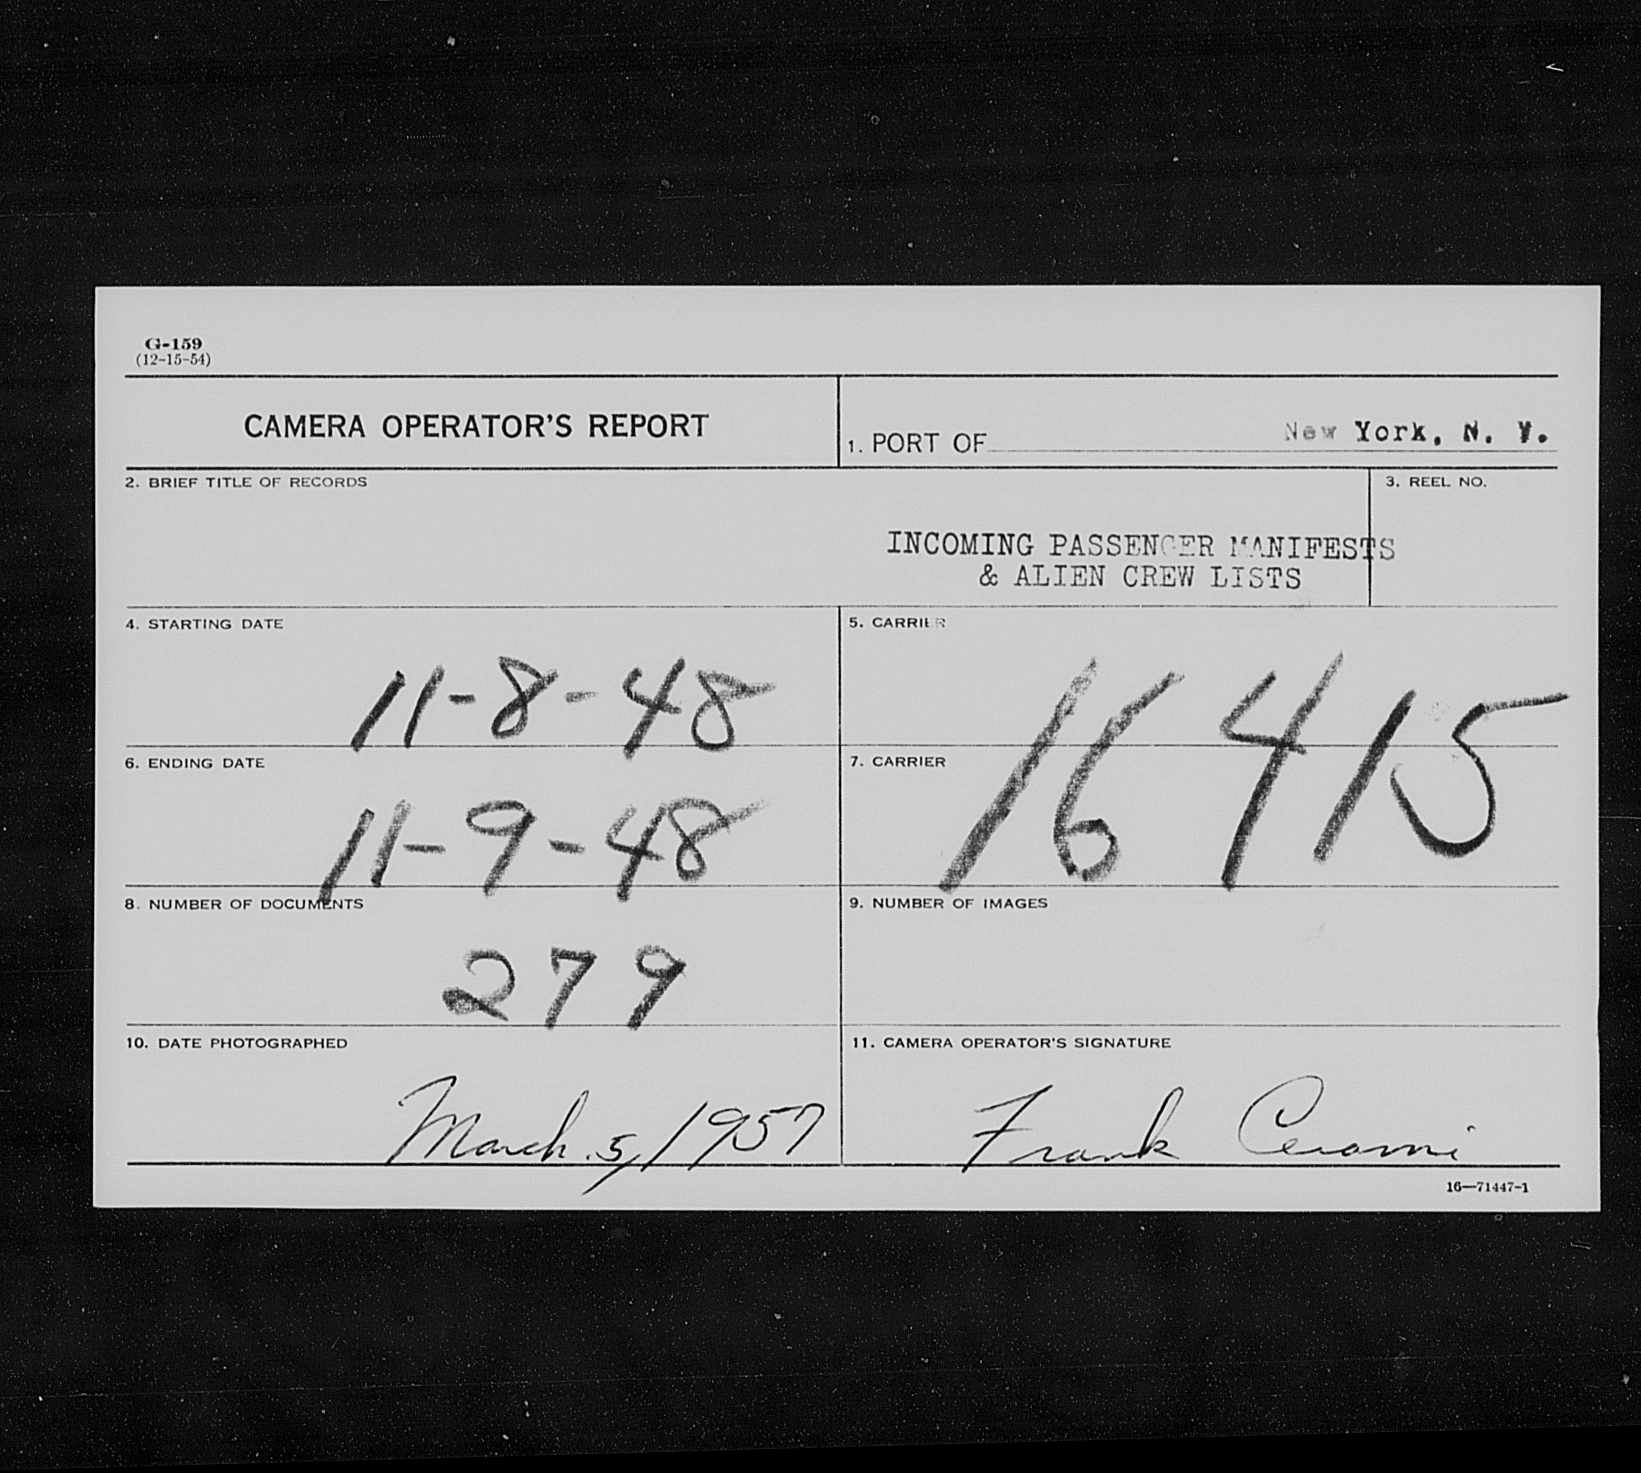 G-159
(12-15-54)
CAMERA OPERATOR'S REPORT
1. PORT OF New York, N. Y.
2. BRIEF TITLE OF RECORDS
3. REEL NO.
INCOMING PASSENGER MANIFESTS
& ALIEN CREW LISTS
4. STARTING DATE
11-8-48
5. CARRIER
16415
6. ENDING DATE
11-9-48
7. CARRIER
8. NUMBER OF DOCUMENTS
279
9. NUMBER OF IMAGES
10. DATE PHOTOGRAPHED
March 5, 1957
11. CAMERA OPERATOR'S SIGNATURE
Frank Cerami
16—71447-1